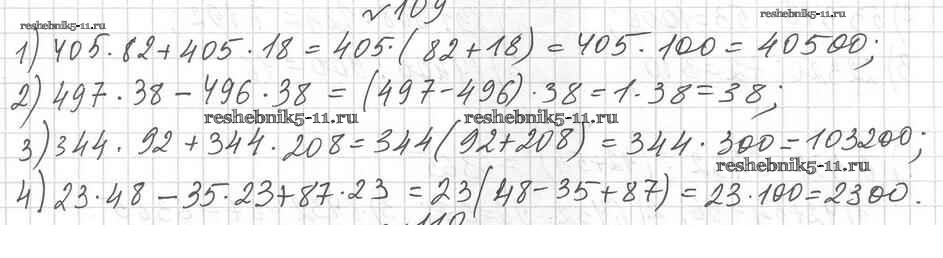 №109
reshebnik5-11.ru
reshebnik5-11.ru
1) 405·82+405·18 = 405·(82+18) = 405·100 = 40500;
2) 497·38 − 496·38 = (497−496)·38 = 1·38 = 38;
reshebnik5-11.ru
reshebnik5-11.ru
3) 344·92 + 344·208 = 344(92+208) = 344·300 = 103200;
reshebnik5-11.ru
4) 23·48 − 35·23 + 87·23 = 23(48−35+87) = 23·100 = 2300.